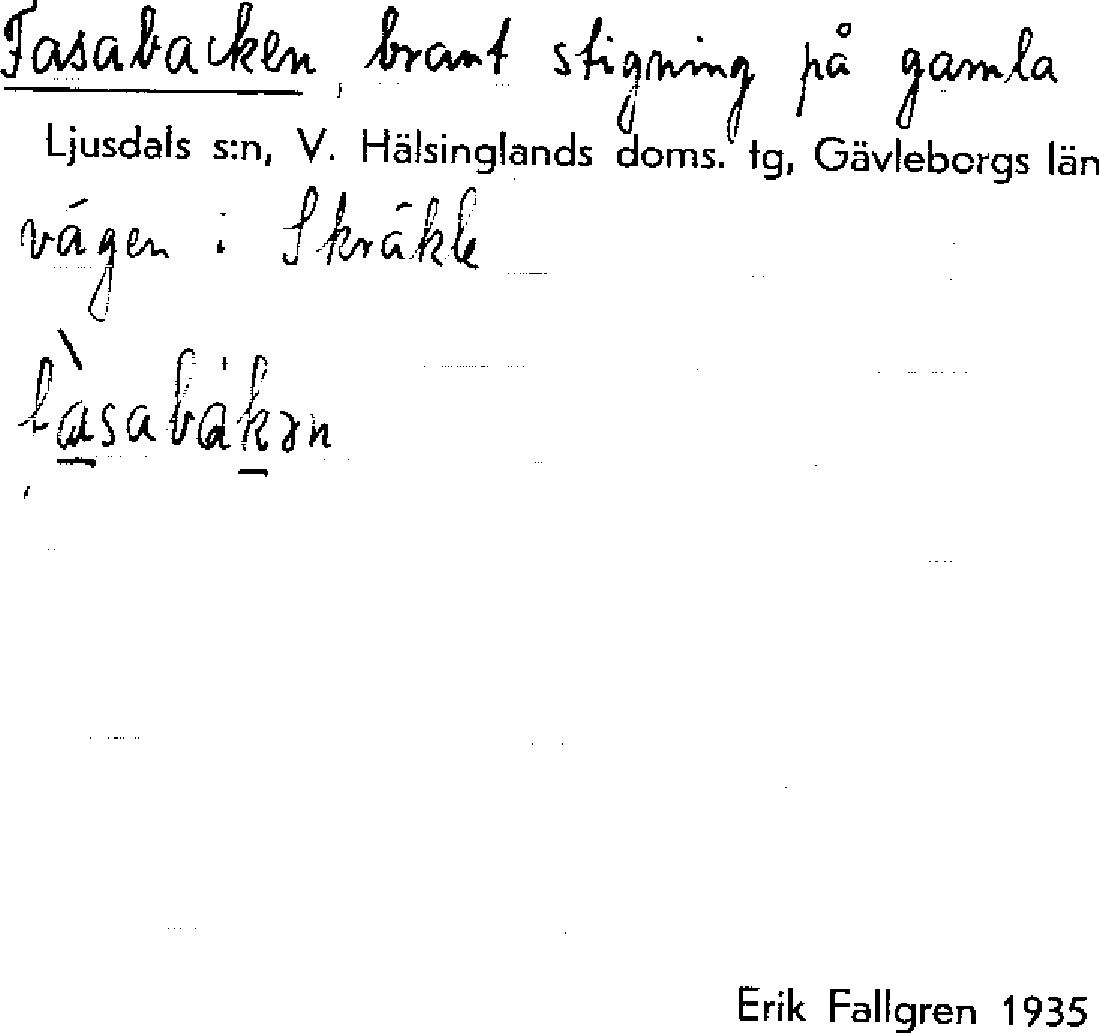 Fasabacken, brant stigning på gamla
Ljusdals s:n, V. Hälsinglands doms. tg, Gävleborgs län
vägen i Skräkle
fàsabákən
Erik Fallgren 1935